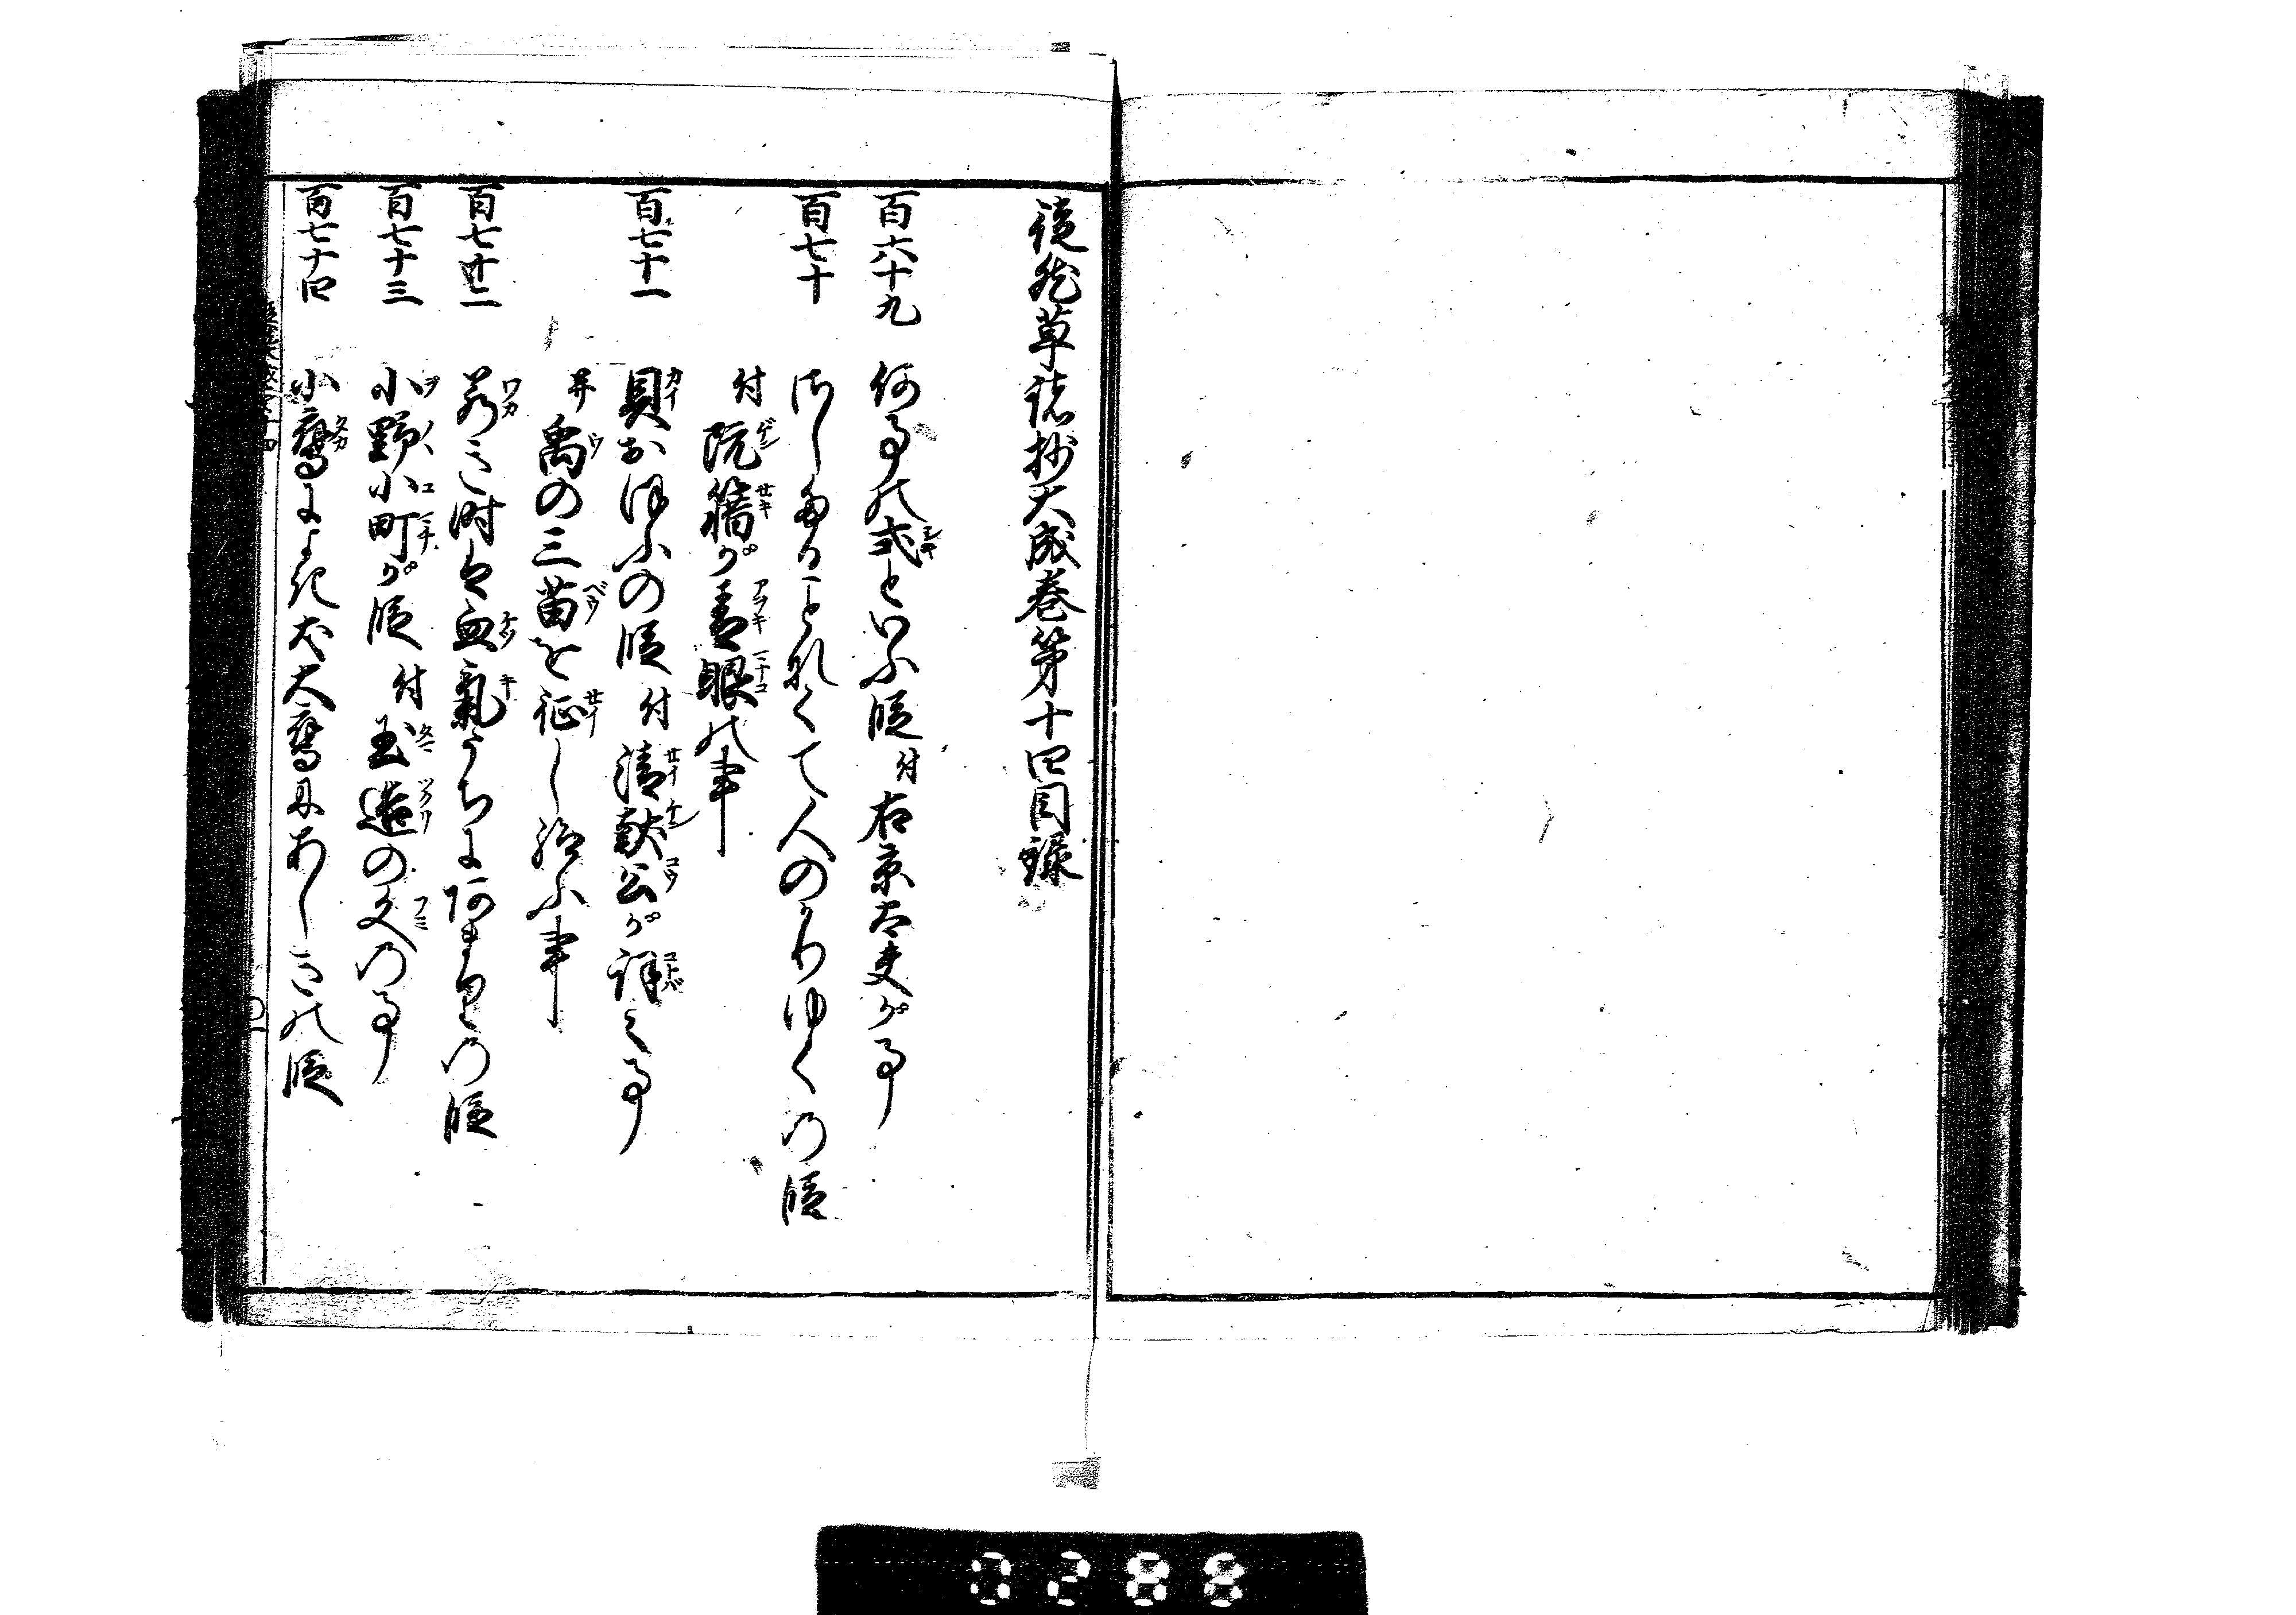 徒然草諸抄大成巻第十四目録
百六十九 何事の式といふ段 付右京大夫が事
百七十 さしたることなくて人のがりゆくの段
付阮籍が青眼の事
百七十一 貝おほふの段 付清献公が詞之事
并禹の三苗を征し給ふ事
百七十二 若き時は血気うちにあまりの段
百七十三 小野小町が段 付玉造の文の事
百七十四 小鷹によき犬大鷹にあしきの段
0288